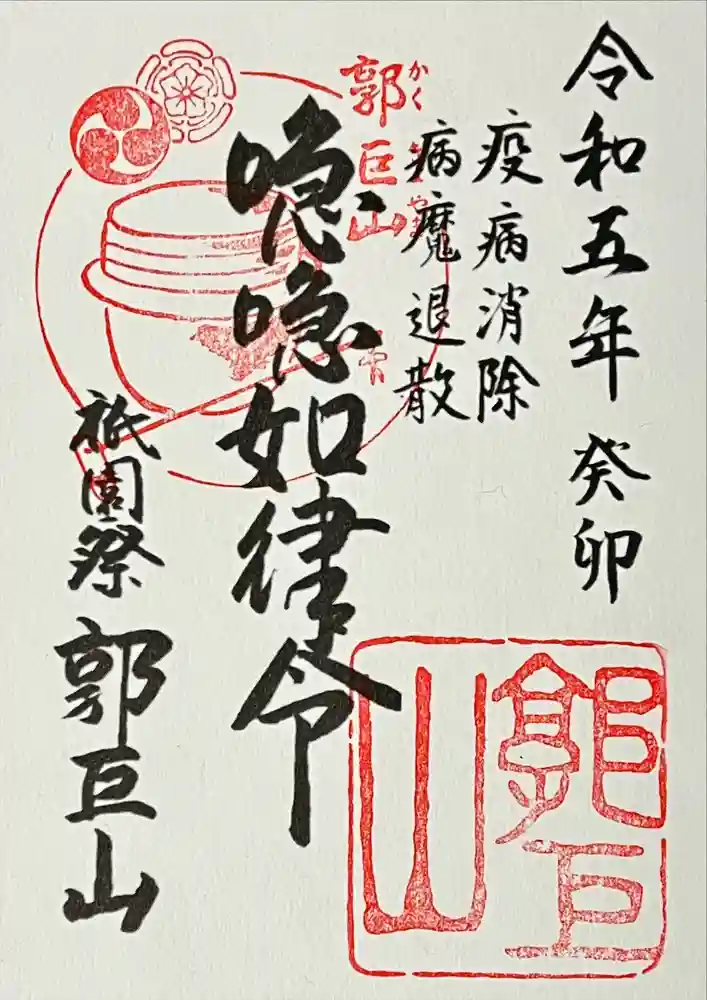 令和五年 癸卯
疫病消除
病魔退散
郭巨山
かく
やま
喼喼如律令
祇園祭 郭巨山
郭巨山